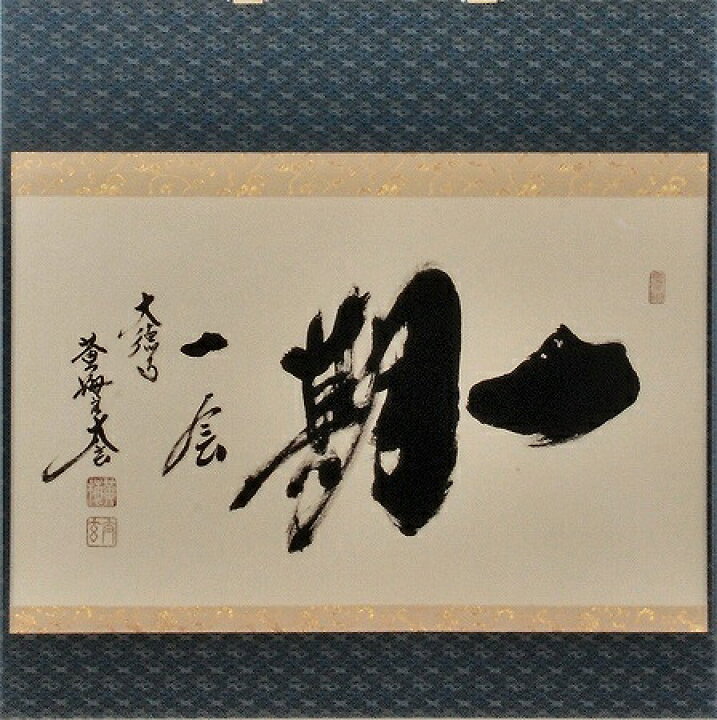 一期
一会
大徳寺
黄梅太玄